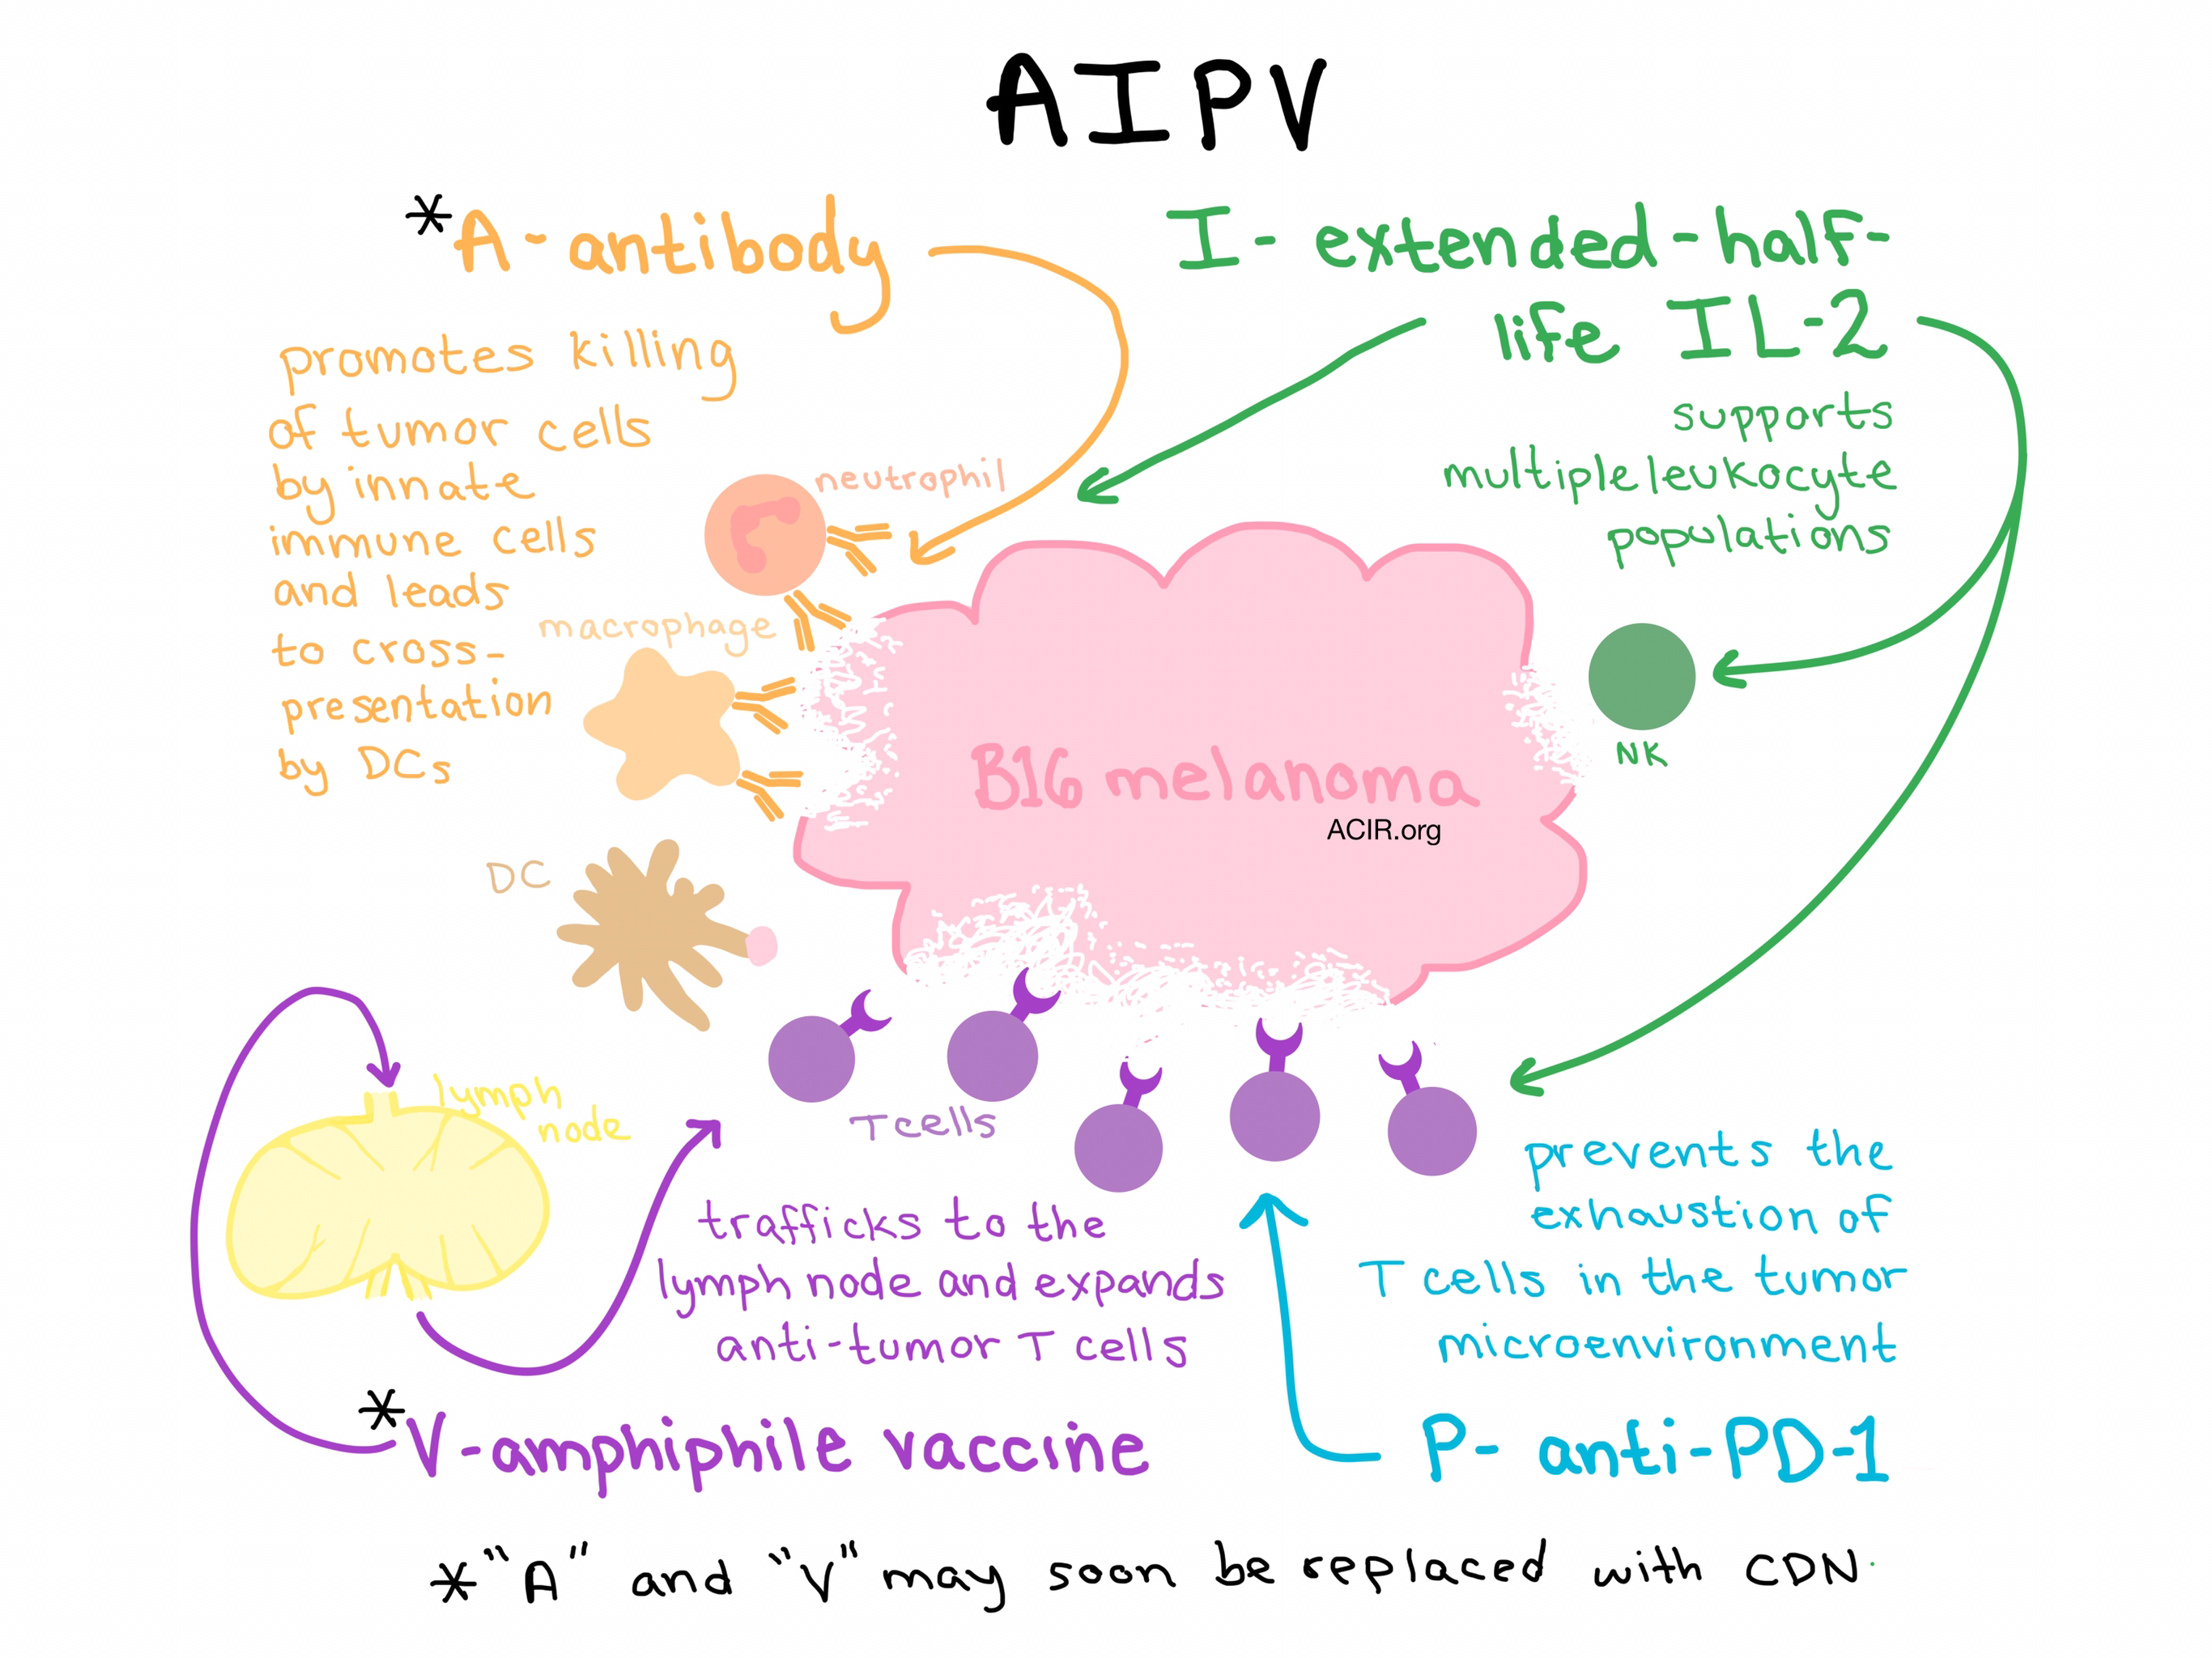 AIPV
*A-antibody
promotes killing
of tumor cells
by innate
immune cells
and leads
to cross-
presentation
by DCs
I- extended-half-
life IL-2
supports
multiple leukocyte
populations
neutrophil
macrophage
DC
B16 melanoma
ACIR.org
NK
lymph
node
T cells
trafficks to the
lymph node and expands
anti-tumor T cells
*V-amphiphile vaccine
prevents the
exhaustion of
T cells in the tumor
microenvironment
P- anti-PD-1
*"A" and "V" may soon be replaced with CDN.